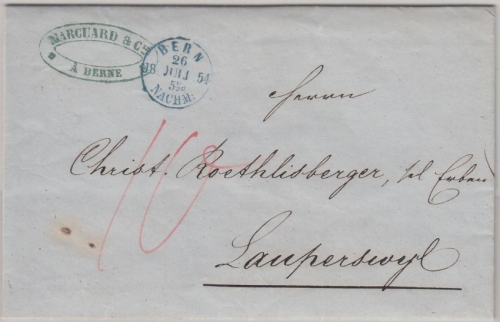 MARCUARD & Cie
À BERNE
BERN
26
18 JULI 54
NACHM:
Herrn
Christ. Roethlisberger, sel Erben
Lauperswyl
10